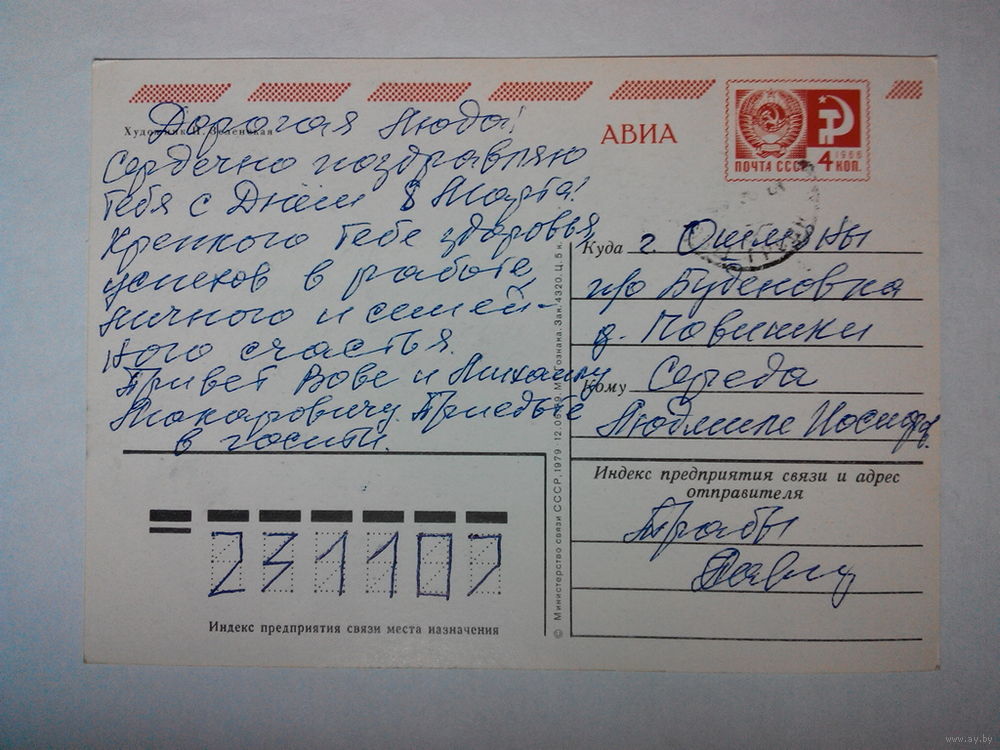 Художник И. Зеленская
АВИА
ПОЧТА СССР
1966
4 КОП.
Дорогая Люда!
Сердечно поздравляю
тебя с Днем 8 Марта!
Крепкого тебе здоровья,
успехов в работе,
личного и семей-
ного счастья.
Привет Вове и Михаилу
Макаровичу. Приедьте
в гости.
Куда г. Ошмяны
п/о Буденовка
д. Повишки
Кому Середа
Людмиле Иосифов.
Индекс предприятия связи и адрес
отправителя
Трабы
231107
Индекс предприятия связи места назначения
© Министерство связи СССР, 1979. 12.09.79. МПФ Гознака. Зак. 4320. Ц. 5 к.
www.ay.by